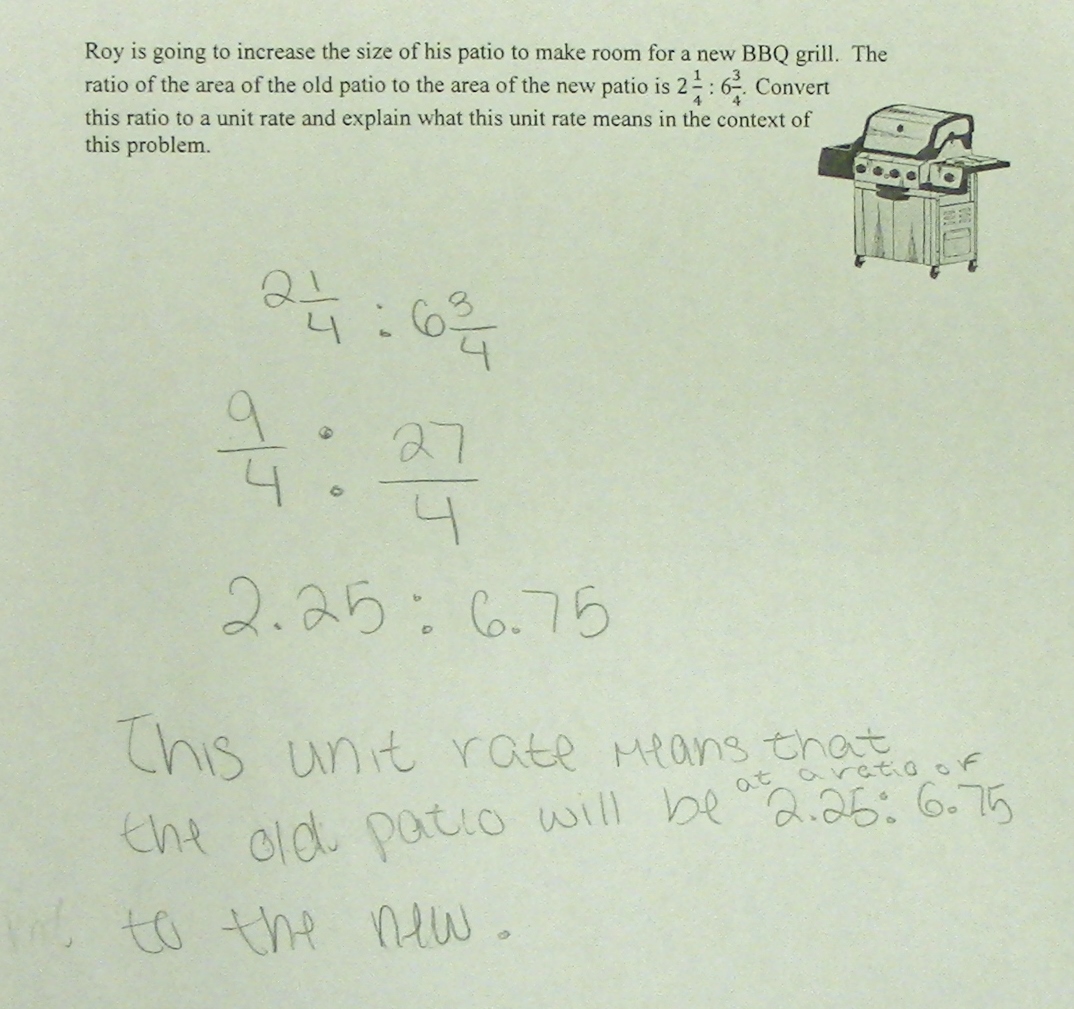 Roy is going to increase the size of his patio to make room for a new BBQ grill. The
ratio of the area of the old patio to the area of the new patio is 2 1/4 : 6 3/4. Convert
this ratio to a unit rate and explain what this unit rate means in the context of
this problem.
2 1/4 : 6 3/4
9/4 : 27/4
2.25 : 6.75
This unit rate means that
the old patio will be at a ratio of 2.25 : 6.75
to the new.